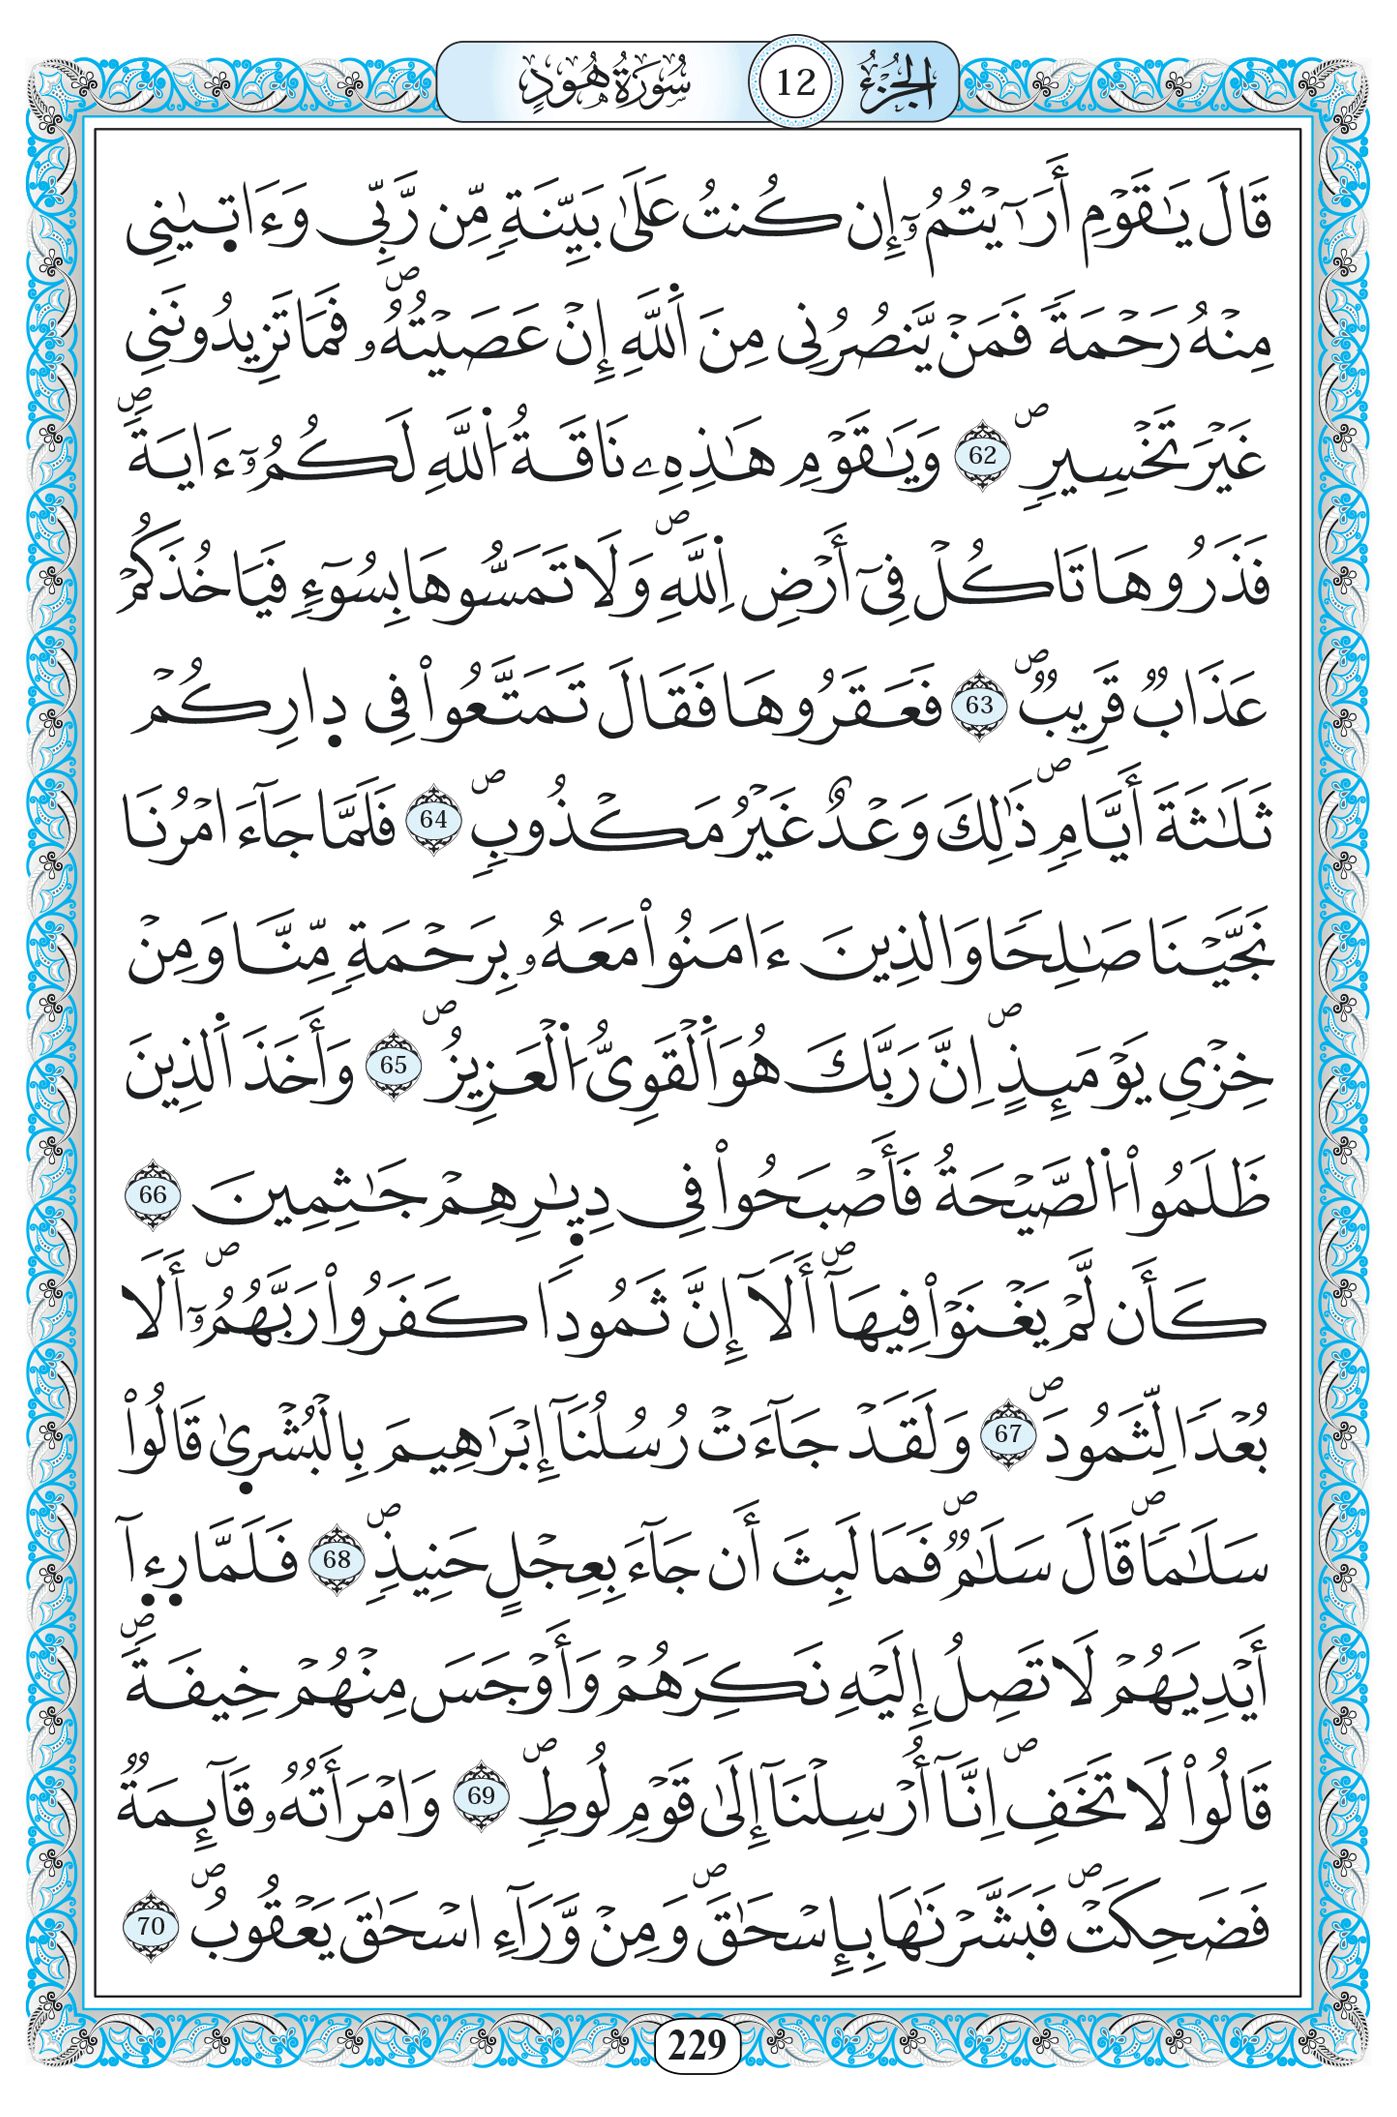 الجُزْءُ 12 سُورَةُ هُودٍ
قَالَ يَٰقَوْمِ أَرَٰٓيْتُمُۥٓ إِن كُنتُ عَلَىٰ بَيِّنَةٖ مِّن رَّبِّے وَءَات۪يٰنِے
مِنْهُ رَحْمَةٗ فَمَنْ يَّنصُرُنِے مِنَ اَ۬للَّهِ إِنْ عَصَيْتُهُۥۖ فَمَا تَزِيدُونَنِے
غَيْرَ تَخْسِيرٖۖ 62 وَيَٰقَوْمِ هَٰذِهِۦ نَاقَةُ اُ۬للَّهِ لَكُمُۥٓ ءَايَةٗۖ
فَذَرُوهَا تَاكُلْ فِےٓ أَرْضِ اِ۬للَّهِۖ وَلَا تَمَسُّوهَا بِسُوٓءٖ فَيَاخُذَكُمْ
عَذَابٞ قَرِيبٞۖ 63 فَعَقَرُوهَا فَقَالَ تَمَتَّعُواْ فِے د۪ارِكُمْ
ثَلَٰثَةَ أَيَّامٖۖ ذَٰلِكَ وَعْدٌ غَيْرُ مَكْذُوبٖۖ 64 فَلَمَّا جَآءَ امْرُنَا
نَجَّيْنَا صَٰلِحاٗ وَالذِينَ ءَامَنُواْ مَعَهُۥ بِرَحْمَةٖ مِّنَّا وَمِنْ
خِزْيِ يَوْمَئِذٍۖ اِنَّ رَبَّكَ هُوَ اَ۬لْقَوِيُّ اُ۬لْعَزِيزُۖ 65 وَأَخَذَ اَ۬لذِينَ
ظَلَمُواْ اُ۬لصَّيْحَةُ فَأَصْبَحُواْ فِے دِيٰ۪رِهِمْ جَٰثِمِينَ 66
كَأَن لَّمْ يَغْنَوْاْ فِيهَآۖ أَلَآ إِنَّ ثَمُوداٗ كَفَرُواْ رَبَّهُمُۥٓۖ أَلَا
بُعْداٗ لِّثَمُودَۖ 67 وَلَقَدْ جَآءَتْ رُسُلُنَآ إِبْرَٰهِيمَ بِالْبُشْر۪ىٰ قَالُواْ
سَلَٰماٗۖ قَالَ سَلَٰمٞۖ فَمَا لَبِثَ أَن جَآءَ بِعِجْلٍ حَنِيذٖۖ 68 فَلَمَّا ر۪ء۪آ
أَيْدِيَهُمْ لَا تَصِلُ إِلَيْهِ نَكِرَهُمْ وَأَوْجَسَ مِنْهُمْ خِيفَةٗۖ
قَالُواْ لَا تَخَفِۖ اِنَّآ أُرْسِلْنَآ إِلَىٰ قَوْمِ لُوطٖۖ 69 وَامْرَأَتُهُۥ قَآئِمَةٞ
فَضَحِكَتْۖ فَبَشَّرْنَٰهَا بِإِسْحَٰقَۖ وَمِنْ وَّرَآءِ اسْحَٰقَ يَعْقُوبُۖ 70
229